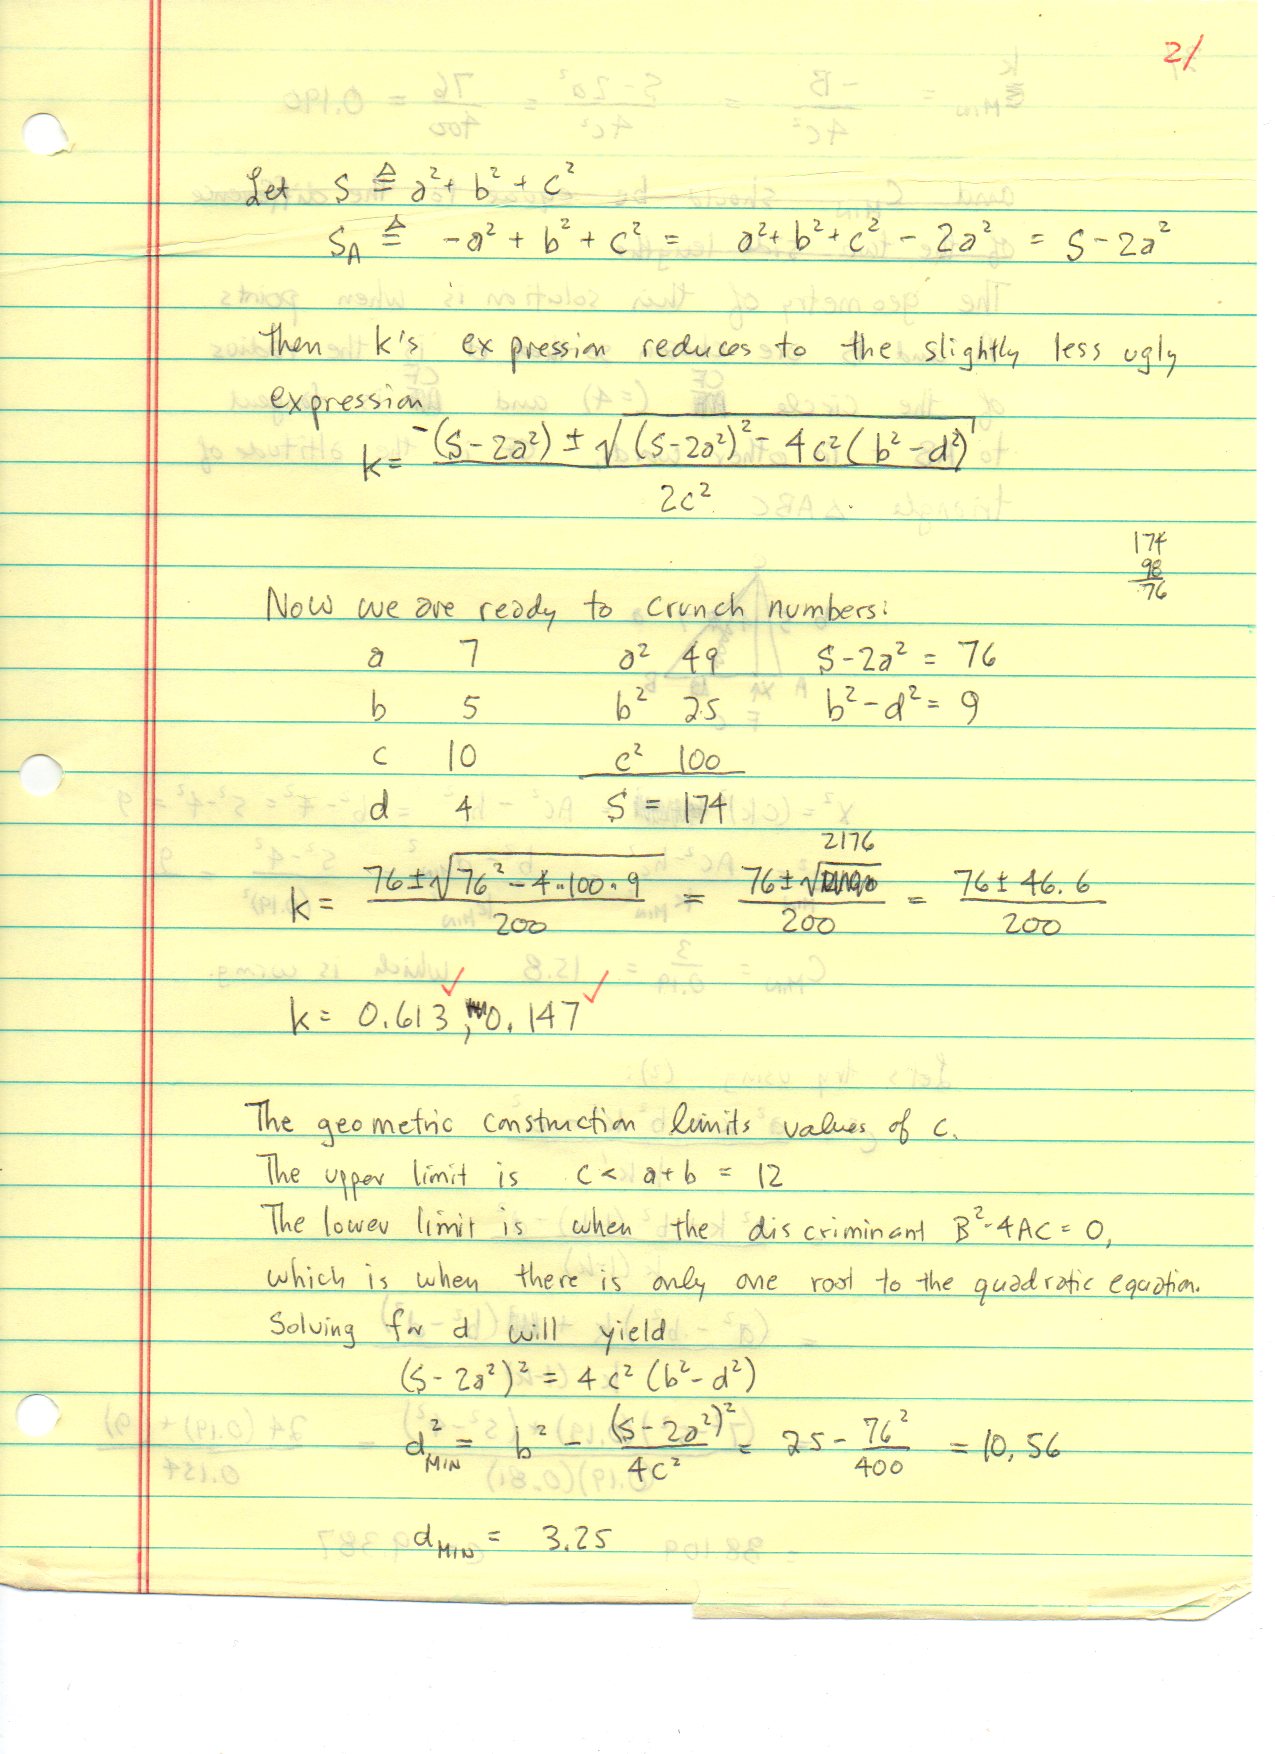 2/
Let S ≜ a² + b² + c²
S_A ≜ -a² + b² + c² = a² + b² + c² - 2a² = S - 2a²
then k's expression reduces to the slightly less ugly
expression
k = -(S-2a²) ± √((S-2a²)² - 4c²(b²-d²)) / 2c²
174
98
76
Now we are ready to crunch numbers:
a 7 a² 49 S-2a² = 76
b 5 b² 25 b²-d² = 9
c 10 c² 100
d 4 S = 174
2176
k = 76 ± √(76² - 4·100·9) / 200 = 76 ± √ / 200 = 76 ± 46.6 / 200
k = 0.613 ✓, 0.147 ✓
The geometric construction limits values of c.
The upper limit is c < a+b = 12
The lower limit is when the discriminant B²-4AC = 0,
which is when there is only one root to the quadratic equation.
Solving for d will yield
(S-2a²)² = 4c²(b²-d²)
d²_MIN = b² - (S-2a²)² / 4c² = 25 - 76² / 400 = 10,56
d_MIN = 3.25